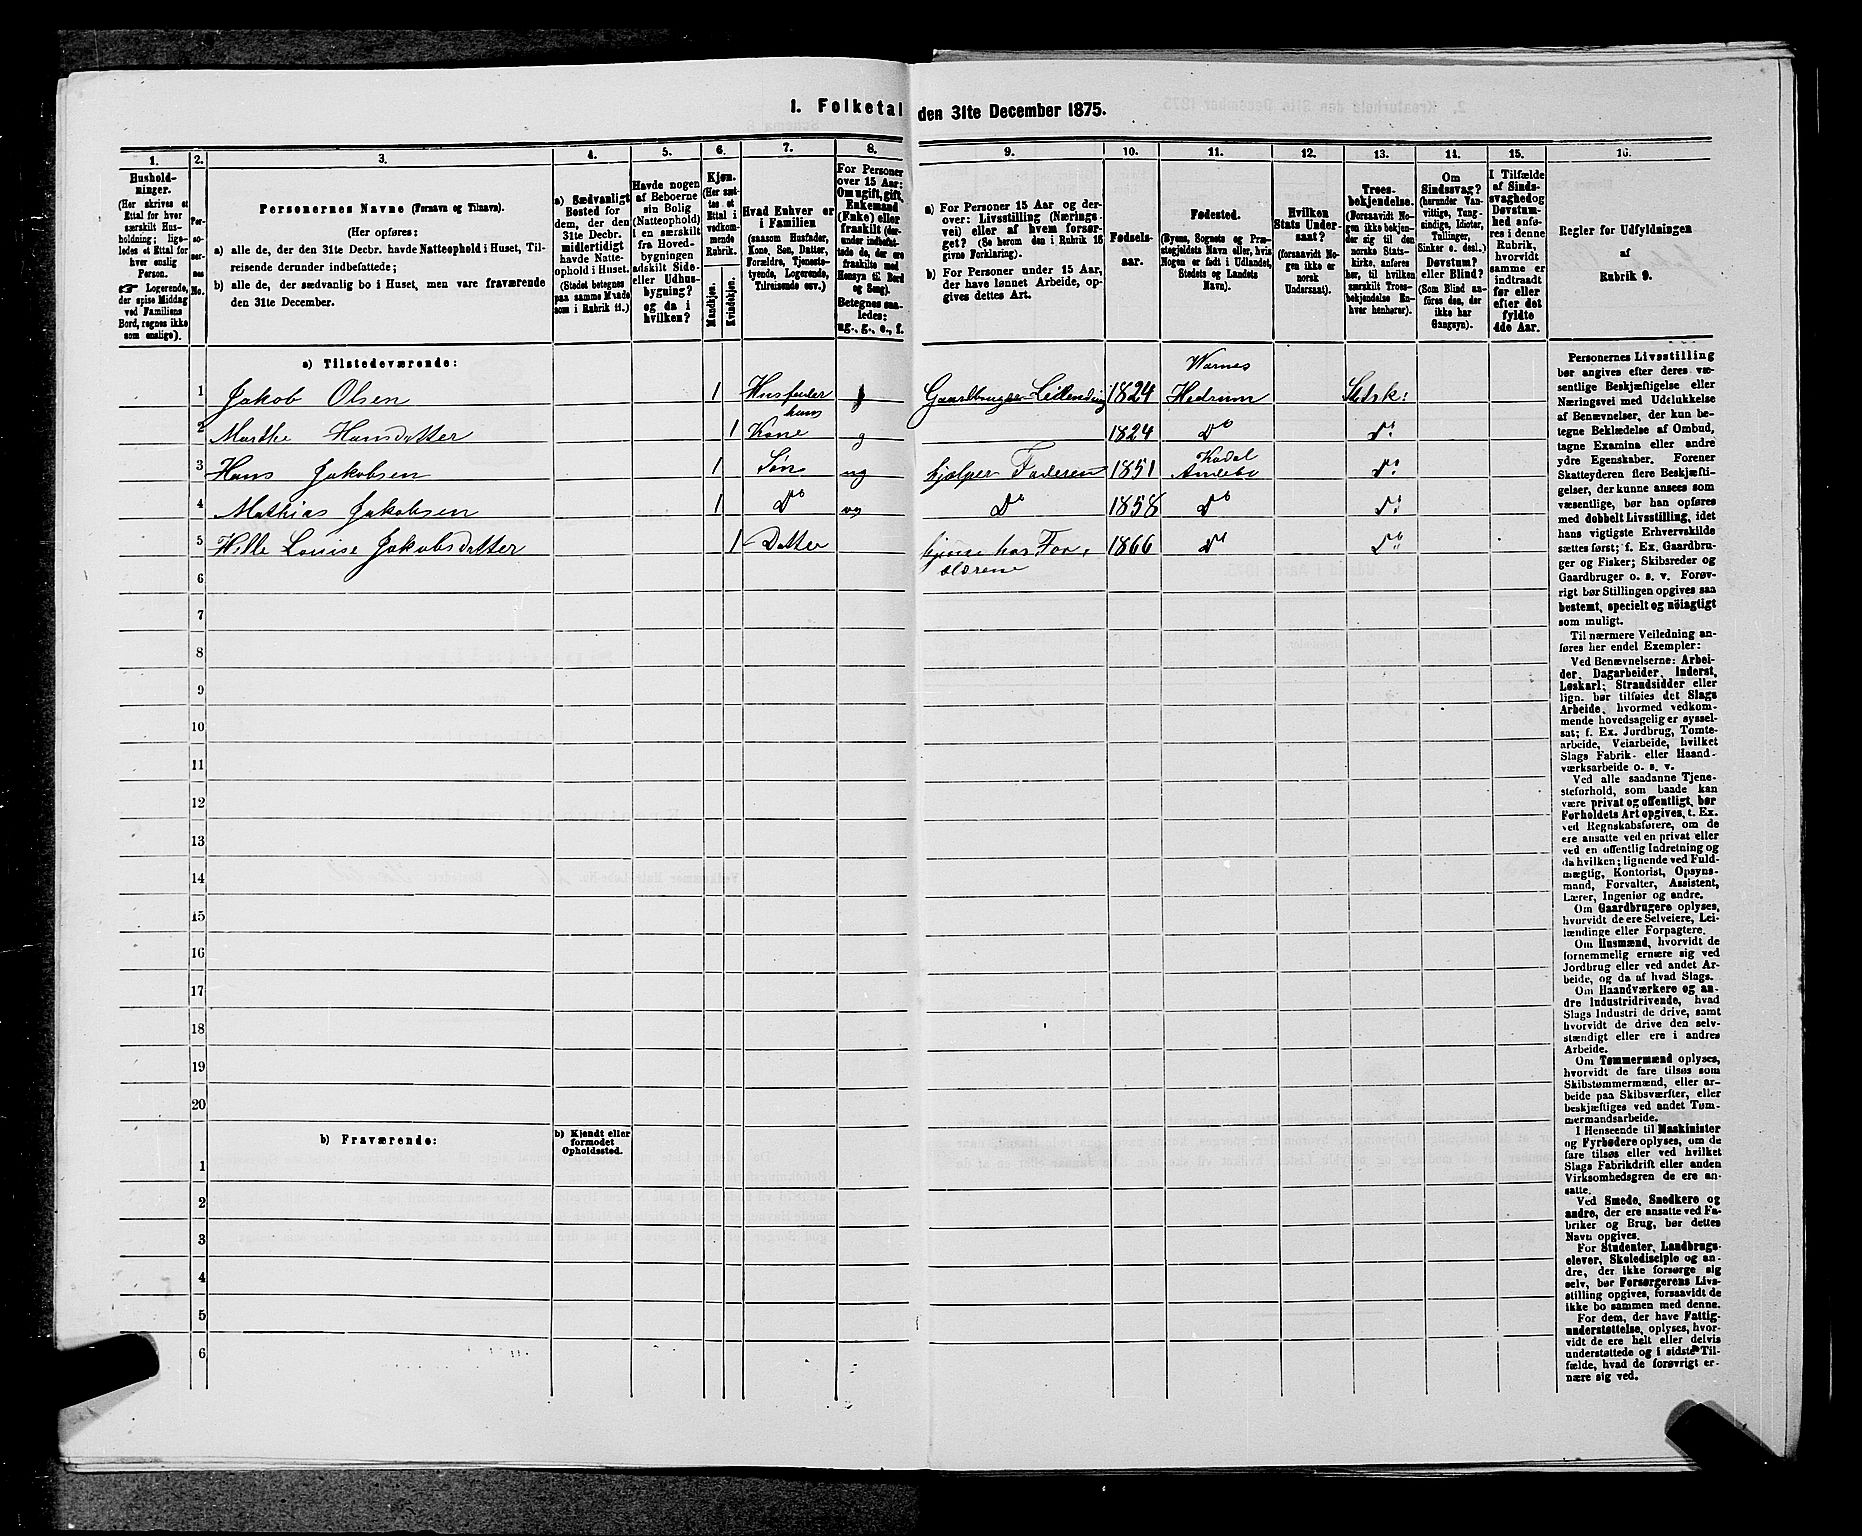 1. Folketal den 31te December 1875.
1. 2. 3. 4. 5. 6. 7. 8. 9. 10. 11. 12. 13. 14. 15. 16.
Hushold-
ninger.
(Her skrives et
Ettal for hver
særskilt Hus-
holdning; lige-
ledes et Ettal
for hver enslig
Person.
☞ Logerende,
der spise Middag
ved Familiens
Bord, regnes ikke
som enslige).
Per-
so-
ner-
nes
No.
Personernes Navne (Fornavn og Tilnavn).
(Her opføres:
a) alle de, der den 31te Decbr. havde Natteophold i Huset, Til-
reisende derunder indbefattede;
b) alle de, der sædvanlig bo i Huset, men vare fraværende
den 31te December.
a) Sædvanligt
Bosted for
dem, der den
31te Decbr.
midlertidigt
havde Natte-
ophold i Huset.
(Stedet betegnes
paa samme Maade
som i Rubrik 11.)
Havde nogen
af Beboerne
sin Bolig
(Natteophold)
i en særskilt
fra Hoved-
bygningen
adskilt Side-
eller Udhus-
bygning?
og da i
hvilken?
Kjøn.
(Her sæt-
tes et
Ettal i
vedkom-
mende
Rubrik.
Mandkjøn.
Kvindekjøn.
Hvad Enhver er
i Familien
(saasom Husfader,
Kone, Søn, Datter,
Forældre, Tjeneste-
tyende, Logerende,
Tilreisende osv.)
For Personer
over 15 Aar:
Om ugift, gift,
Enkemand
(Enke) eller
fraskilt (der-
under indbefat-
tede de, der ere
fraskilte med
Hensyn til Bord
og Seng).
Betegnes saa-
ledes:
ug., g., e., f.
a) For Personer 15 Aar og der-
over: Livsstilling (Nærings-
vei) eller af hvem forsør-
get? (Se herom den i Rubrik 16
givne Forklaring).
b) For Personer under 15 Aar,
der have lønnet Arbeide, op-
gives dettes Art.
Fødsels-
aar.
Fødested.
(Byens, Sognets og Præ-
stegjeldets Navn eller, hvis
Nogen er født i Udlandet,
Stedets og Landets
Navn).
Hvilken
Stats Under-
saat?
(forsaavidt No-
gen ikke er
norsk
Undersaat).
Troes-
bekjendelse.
(Forsaavidt No-
gen ikke bekjen-
der sig til den
norske Stats-
kirke, anføres
her, til hvilken
særskilt Troes-
bekjendelse En-
hver henhører).
Om
Sindssvag?
(herunder Van-
vittige, Tung-
sindige, Idioter,
Tullinger,
Sinker o. desl.)
Døvstum?
eller Blind?
(Som Blind an-
føres den, der
ikke har
Gangsyn).
I Tilfælde
af Sinds-
svaghed og
Døvstum-
hed anfø-
res i denne
Rubrik,
hvorvidt
samme er
indtraadt
før eller
efter det
fyldte
4de Aar.
Regler for Udfyldningen
af
Rubrik 9.
a) Tilstedeværende:
1 Jakob Olsen 1 Husfader g Gaardbruger Leilending 1824 Warnes Hedrum Stdsk:
2 Marthe Hansdatter 1 hans Kone g 1824 Do Do
3 Hans Jakobsen 1 Søn ug hjælper Faderen 1851 Kodal Andebo Do
4 Mathias Jakobsen 1 Do ug Do 1858 Do Do
5 Helle Louise Jakobsdatter 1 Datter hjeme hos For, 1866 Do Do
6 ældrene
7
8
9
10
11
12
13
14
15
16
17
18
19
20
b) Fraværende:
b) Kjendt eller
formodet
Opholdssted.
1
2
3
4
5
6
Personernes Livsstilling
bør angives efter deres væ-
sentlige Beskjæftigelse eller
Næringsvei med Udelukkelse
af Benævnelser, der kun be-
tegne Beklædelse af Ombud,
tagne Examina eller andre
ydre Egenskaber. Forener
Skatteyderen flere Beskjæfti-
gelser, der kunne ansees som
væsentlige, bør han opføres
med dobbelt Livsstilling, idet
hans vigtigste Erhvervskilde
sættes først; f. Ex. Gaardbru-
ger og Fisker; Skibsreder og
Gaardbruger o. s. v. Forøv-
rigt bør Stillingen opgives saa
bestemt, specielt og nöiagtigt
som muligt.
Til nærmere Veiledning an-
føres her endel Exempler:
Ved Benævnelserne: Arbei-
der, Dagarbeider, Inderst,
Løskarl; Strandsidder eller
lign. bør tilføies det Slags
Arbeide, hvormed vedkom-
mende hovedsagelig er syssel-
sat; f. Ex. Jordbrug, Tomte-
arbeide, Veiarbeide, hvilket
Slags Fabrik- eller Haand-
værksarbeide o. s. v.
Ved alle saadanne Tjene-
steforhold, som baade kan
være privat og offentligt, bør
Forholdets Art opgives, t. Ex.
ved Regnskabsførere, om de
ere ansatte ved en privat eller
ved en offentlig Indretning og
da hvilken; lignende ved Fuld-
mægtig, Kontorist, Opsyns-
mand, Forvalter, Assistent,
Lærer, Ingeniør og andre.
Om Gaardbrugere oplyses,
hvorvidt de ere Selveiere, Lei-
lændinge eller Forpagtere.
Om Husmænd, hvorvidt de
fornemmelig ernære sig ved
Jordbrug eller ved andet Ar-
beide, og da af hvad Slags.
Om Haandværkere og an-
dre Industridrivende, hvad
Slags Industri de drive, samt
hvorvidt de drive den selv-
stændigt eller ere i andres
Arbeide.
Om Tømmermænd oplyses,
hvorvidt de fare tilsøs som
Skibstømmermænd, eller ar-
beide paa Skibsværfter, eller
beskjæftiges ved andet Tøm-
mermandsarbeide.
I Henseende til Maskinister
og Fyrbødere oplyses, om de
fare tilsøs eller ved hvilket
Slags Fabrikdrift eller anden
Virksomhedsgren de ere an-
satte.
Ved Smede, Snedkere og
andre, der ere ansatte ved Fa-
briker og Brug, bør dettes
Navn opgives.
For Studenter, Landbrugs-
elever, Skoledisciple og an-
dre, der ikke forsørge sig
selv, bør Forsørgerens Livs-
stilling opgives, forsaavidt de
ikke bo sammen med denne.
For dem, der have Fattig-
understøttelse, oplyses, hvor-
vidt de ere helt eller delvis
understøttede og i sidste Til-
fælde, hvad de forøvrigt er-
nære sig ved.